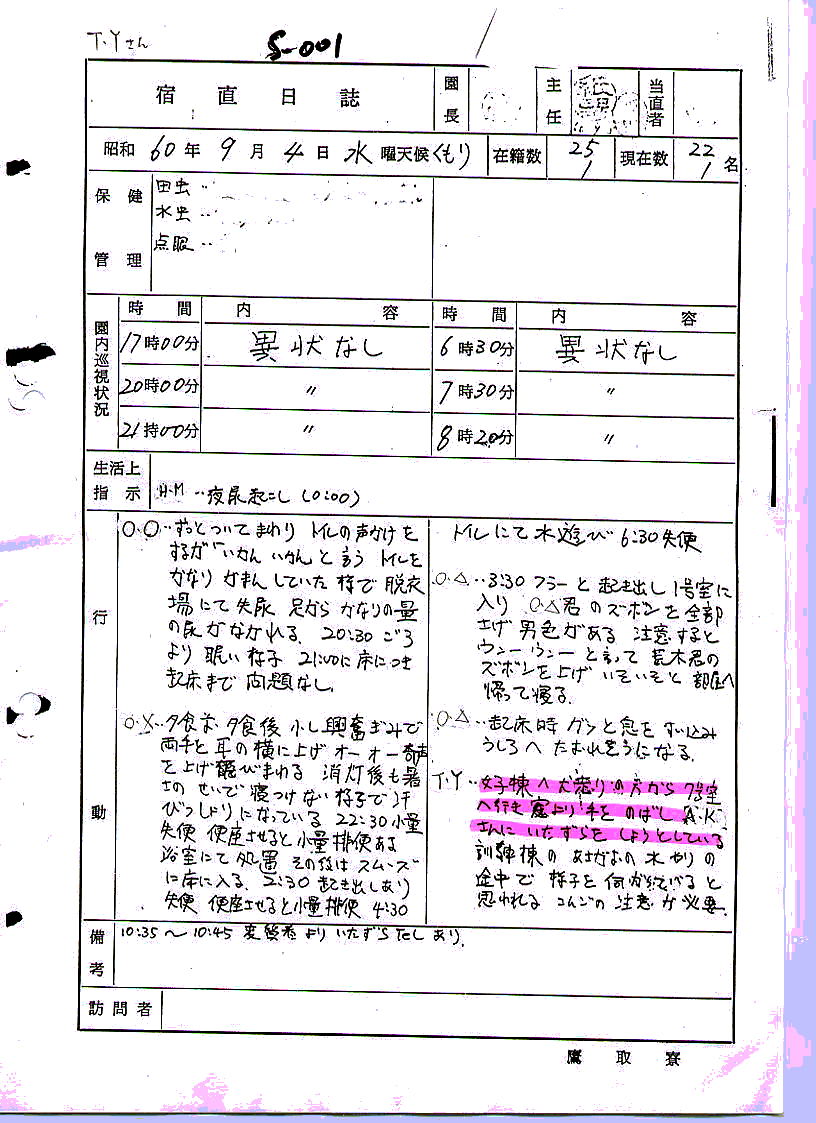 T.Yさん
S-001
宿直日誌
園長
主任
当直者
昭和60年9月4日水曜天候くもり
在籍数 25/1
現在数 22/1名
保健管理
田虫‥
水虫‥
点眼‥
園内巡視状況
時間 内容 時間 内容
17時00分 異状なし 6時30分 異状なし
20時00分 〃 7時30分 〃
21時00分 〃 8時20分 〃
生活上指示
H.M‥夜尿起こし(0:00)
行動
○.○‥ずっとついてまわり トイレの声かけを
するが「いかん いかん」と言う トイレを
かなり がまんしていた様で 脱衣
場にて失尿 足から かなりの量
の尿がながれる. 20:30ごろ
より 眠い様子 21:00に床につき
起床まで 問題なし.
○.X‥夕食前 夕食後 少し興奮ぎみで
両手を耳の横に上げオーオー奇声
を上げ飛びまわる 消灯後も暑
さのせいで寝つけない様子で汗
びっしょりになっている 22:30少量
失便 便座させると少量排便ある
浴室にて処置 その後はスムーズ
に床に入る. 2:30 起き出しあり
失便 便座させると少量排便 4:30
トイレにて水遊び 6:30失便
○.△‥3:30 フラーと起き出し1号室に
入り ○△君のズボンを全部
さげ男色がある 注意すると
ウンー ウンー と言って 荒木君の
ズボンを上げ いそいそと 部屋へ
帰って寝る.
○.△‥起床時 グッと息をすい込み
うしろへ たおれそうになる.
T.Y‥女子棟へ犬走りの方から 7号室
へ行き 窓より手をのばし A.K
さんにいたずらをしようとしている
訓練棟の あさがおの水やりの
途中で 様子を伺がっていると
思われる の注意が必要.
備考
10:35〜10:45 変質者よりいたずらでんあり.
訪問者
鷹取寮